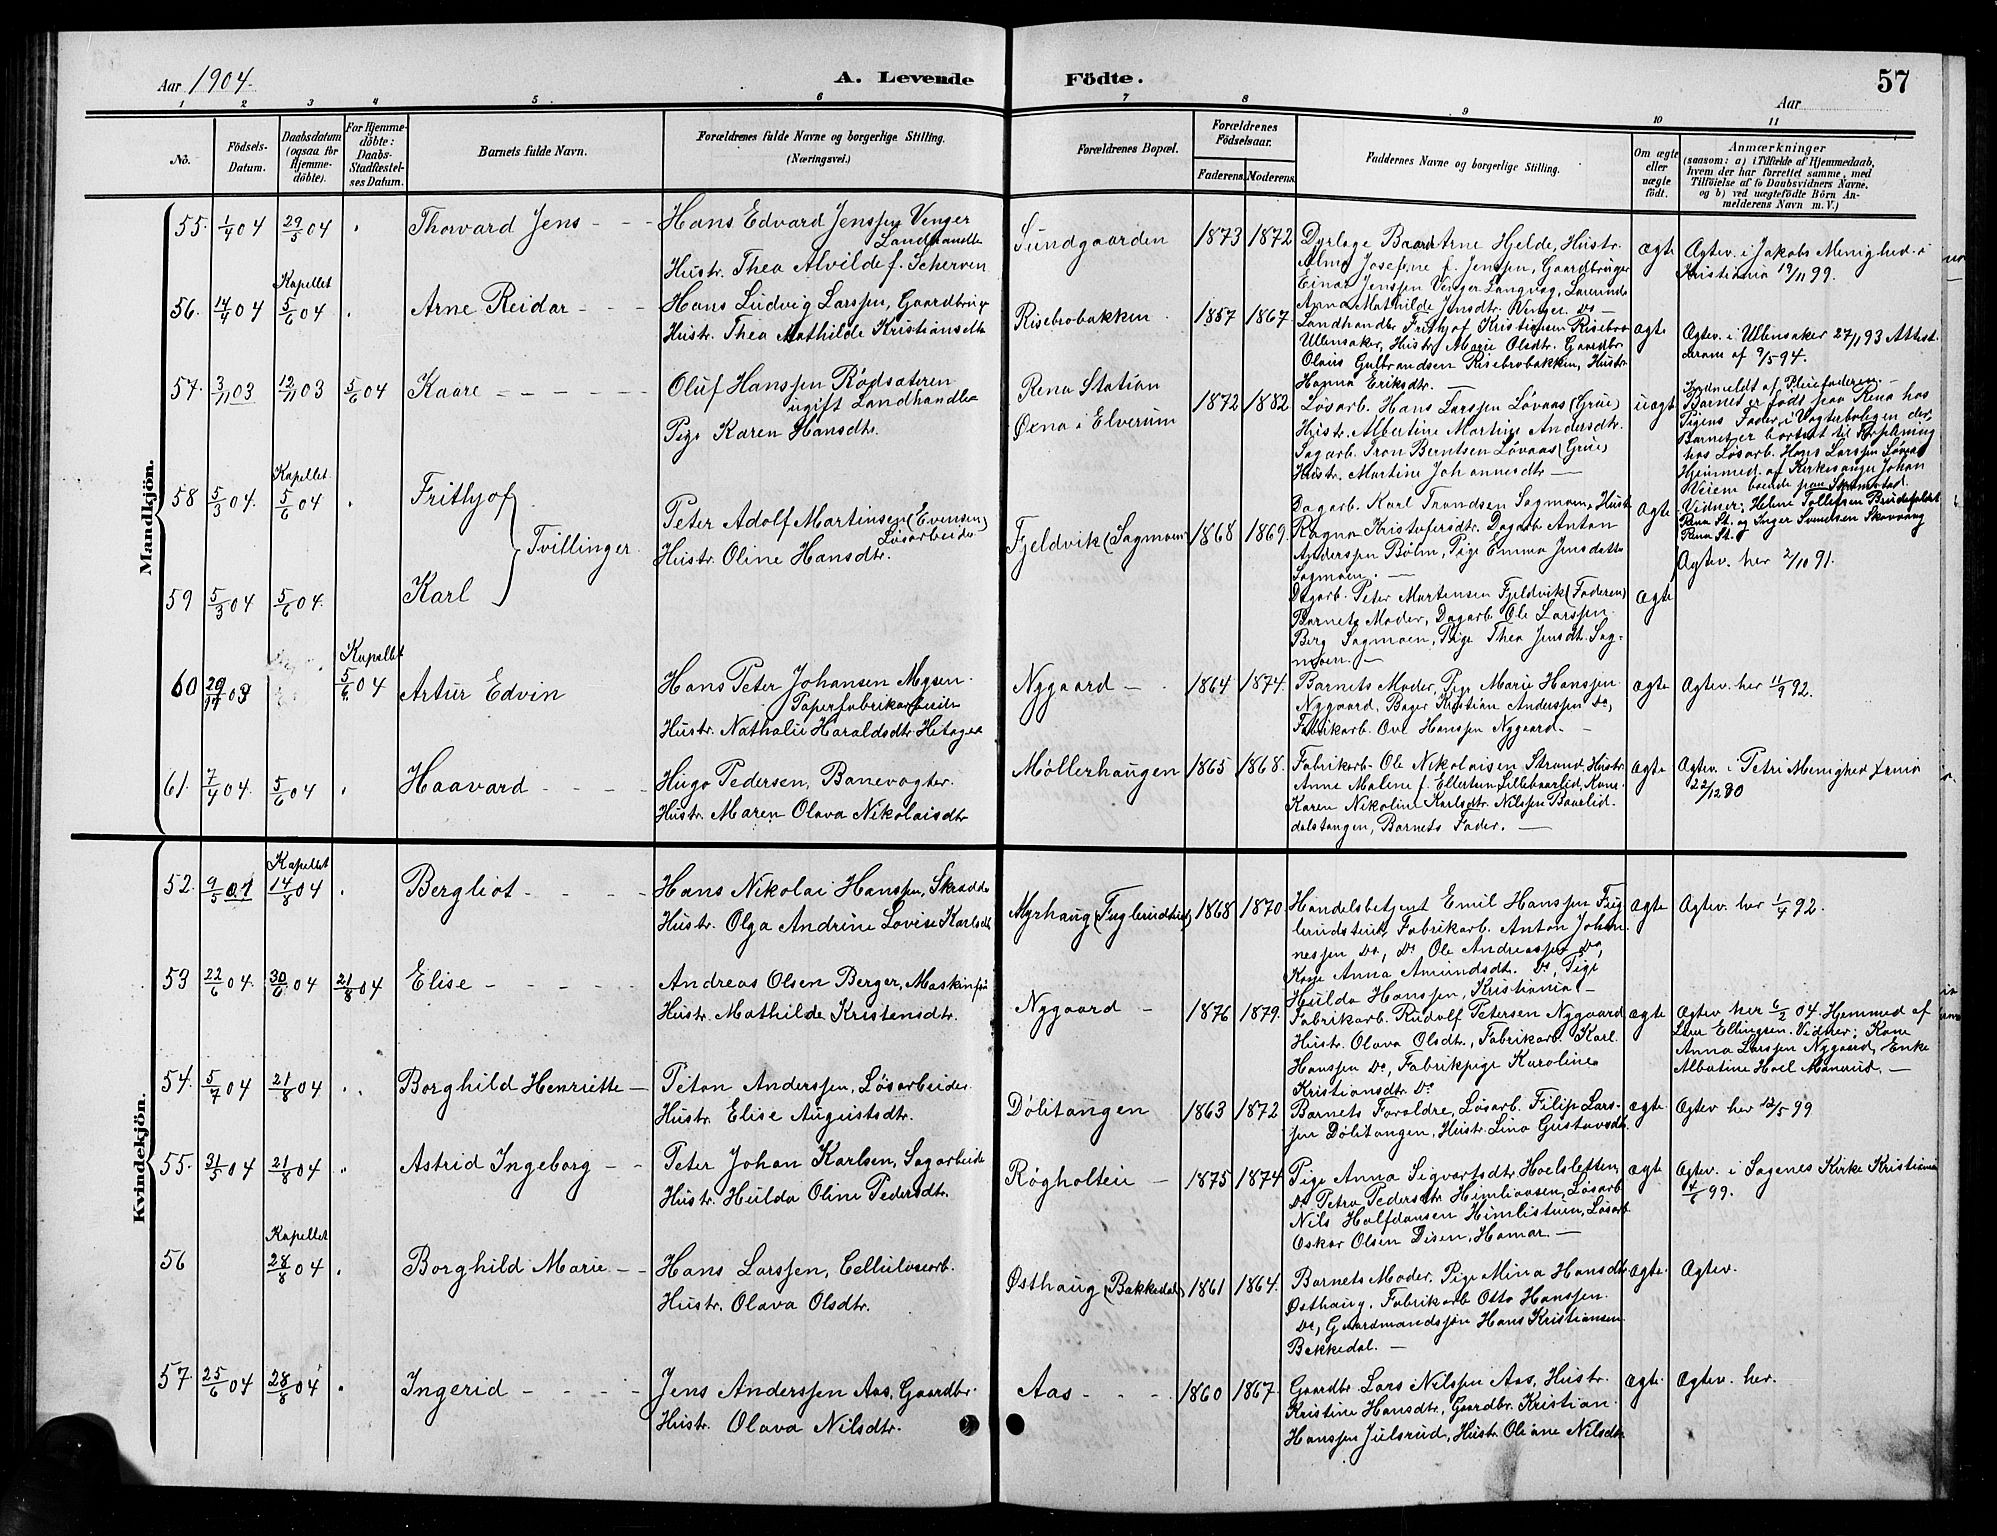 Aar 1904.
A. Levende Födte.
57
Aar
1 2 3 4 5 6 7 8 9 10 11
No.
Födsels-Datum.
Daabsdatum (ogsaa för Hjemmedöbte).
For Hjemmedöbte: Daabs-Stadfæstelses Datum.
Barnets fulde Navn.
Forældrenes fulde Navne og borgerlige Stilling. (Næringsvei.)
Forældrenes Bopæl.
Forældrenes Födselsaar.
Faderens. Moderens.
Faddernes Navne og borgerlige Stilling.
Om ægte eller uægte födt.
Anmærkninger (saasom: a) i Tilfælde af Hjemmedaab, hvem der har forrettet samme, med Tilföielse af to Daabsvidners Navne. og b) ved uægtefödte Börn Anmelderens Navn m. V.)
Mandkjön.
55. 1/4 04 29/5 04 Thorvard Jens
Hans Edvard Jenssen Venger
Landhandle
Hustr. Thea Alvilde f. Scherven
Sundgaarden 1873 1872
Dyrlæge Baard Arne Hjelde, Hustr.
Alma Josefine f. Jenssen, Gaardbruger
Einar Jenssen Venger Langvag, Lærerinde
Anna Mathilde Jensdtr. Venger. Do —
ægte
Ægtev. i Jakobs Menighed i
Kristiania 19/11 99.
Kapellet
56. 14/4 04 5/6 04 Arne Reidar
Hans Ludvig Larssen, Gaardbrug
Hustr. Thea Mathilde Kristiansdtr
Risebrobakken 1857 1867
Landhandle Frithjof Kristiansen Risebro
Ullensaker, Hustr. Marie Olsdtr. Gaardbr.
Olaus Gulbrandsen Risebrobakken, Hustr.
Hanna Eriksdtr. —
ægte
Ægtev. i Ullensaker 27/1 93 Attest
9/5 94.
57. 3/11 03 12/11 03 5/6 04 Kaare
Oluf Hanssen Rødsæteren
ugift Landhandle
Pige Karen Hansdtr.
Rena Station
Øxna i Elverum
1872 1882
Løsarb. Hans Larssen Løvaas (Grue)
Hustr. Albertine Martine Andersdtr.
Sagarb. Tron Berntsen Løvaas (Grue)
Hustr. Martine Johannesdtr —
uægte
Indmeldt af Pleiefaderen. —
Barnet er født paa Rena hos
Pigens Fader, i Vogterboligen der,
Barnet er bortsat til Forpleining
hos Løsarb. Hans Larssen Løvaas
Hjemmed. af Kirkesanger Johan
Veiem boende paa
Vidner: Helene Tollefsen
Rena St. og Inger Svendsen Skavang
Rena St.
Kapellet
58 5/3 04. 5/6 04 Frithjof
Tvillinger.
Peter Adolf Martinsen (Evensen)
Løsarbeide
Hustr. Oline Hansdtr.
Fjeldvik (Sagmoen) 1868 1869.
Dagarb. Karl Trondsen Sagmoen, Hustr
Ragna Kristofersdtr. Dagarb. Anton
Anderssen Bølm, Pige Emma Jensdatte
Sagmoen. —
ægte
Ægtev. her 2/10 91.
59 5/3 04 5/6 04. Karl
Dagarb. Peter Martensen Fjeldvik (Faderen)
Barnets Moder, Dagarb. Ole Larssen
Berg Sagmoen, Pige Thea Jensdtr. Sag-
moen. —
ægte
Kapellet
60 5/6 04 Artur Edvin
Hans Peter Johansen Mysen.
Papirfabrikarbeide
Hustr. Nathalie Haraldsdtr.
Nygaard — 1864 1874.
Barnets Moder, Pige Marie Hanssen
Nygaard, Bager Kristian Anderssen Do,
Fabrikarb. Ove Hanssen Nygaard. —
ægte
Ægtev. her 11/9 92.
61. 7/4 04. 5/6 04 Haavard
Hugo Pedersen, Banevogter.
Hustr. Maren Olava Nikolaisdtr
Møllerhaugen 1865 1868.
Fabrikarb. Ole Nikolaisen Strand, Hustr.
Anne Malene f. Ellertsen Lillebaarlid, Kone
Karen Nikoline Karlsdtr. Nilssen
dalstangen, Barnets Fader. —
ægte
Ægtev. i Petri Menighed
22/12 90
Kvindekjön.
Kapellet
52. 9/5 01 14/8 04 Bergliot
Hans Nikolai Hanssen, Skrædde
Hustr. Olga Andrine Lovise Karlsdtr
Myrhaug (Fuglerudstuen) 1868 1870.
Handelsbetjent Emil Hanssen Fug
lerudstuen, Fabrikarb. Anton Johan-
nessen Do, Do Ole Andreassen Do,
Kone Anna Amundsdtr. Do, Pige
Hulda Hanssen, Kristiania —
ægte
Ægtev. her 1/4 92.
53 22/6 04. 30/6 04 21/8 04 Elise
Andreas Olsen Berger, Maskinfør
Hustr. Mathilde Kristensdtr.
Nygaard — 1876 1879.
Fabrikarb. Rudolf Petersen Nygaard
Hustr. Olava Olsdtr., Fabrikarb. Karl
Hanssen Do, Fabrikpige Karoline
Kristiansdtr. Do
ægte
Ægtev her 6/2 04. Hjemmed af
Ellingsen. Vidner: Kone
Anna Larssen Nygaard, Enke
Albertine Hoel —
54. 5/7 04 21/8 04 Borghild Henriette
Anderssen, Løsarbeide
Hustr. Elise Augustsdtr.
Dølitangen 1863 1872
Barnets Forældre, Løsarb. Filip Lars-
sen Dølitangen, Hustr. Lina Gustavsdtr
ægte
Ægtev her 12/5 99
55. 31/5 04 21/8 04 Astrid Ingeborg
Peter Johan Karlsen, Sagarbeide
Hustr. Hulda Oline Pedersdtr.
Røgholtei — 1875 1874
Pige Anna Sigvartsdtr. Hoelsletten
Do Petra Pedersdtr Løsarb
Nils Halfdansen Himlistuen, Løsarb
Oskar Olsen Disen, Hamar. —
ægte
Ægtev. i Sagenes Kirke Kristiania
4/6 99.
Kapellet
56 28/8 04 Borghild Marie
Hans Larssen, Cellulosearb.
Hustr. Olava Olsdtr.
Østhaug (Bakkedal) 1861 1864.
Barnets Moder, Pige Mina Hansdtr
Østhaug, Fabrikarb Otto Hanssen
Do, Gaardmandssøn Hans Kristiansen
Bakkedal. —
ægte.
Ægtev.
57. 25/6 04 28/8 04 Ingerid
Jens Anderssen Aas, Gaardbr.
Hustr. Olava Nilsdtr.
Aas 1860 1867.
Gaardbr. Lars Nilssen Aas, Hustr.
Kristine Hansdtr, Gaardbr. Kristian
Hanssen Julsrud, Hustr. Oliane Nilsdtr
ægte.
Ægtev. her.